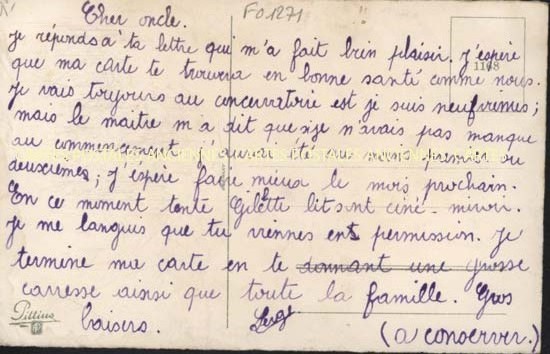 Cher oncle.
FO1271
1118
je réponds a ta lettre qui m'a fait bien plaisir. j'espère
que ma carte te trouvera en bonne santé comme nous.
Je vais toujours au concervatorie est je suis neufvièmes ;
mais le maitre m'a dit que si je n'avais pas manque
au commencement j'aurai été au moin premier ou
deuxièmes ; j'espère faire mieux le mois prochain.
En ce moment tante Gilette lit sont ciné-miroir.
Je me languis que tu viennes ent permission. Je
termine ma carte en te donnant une grosse
carresse ainsi que toute la famille. Gros
baisers.
Serge
(a conserver.)